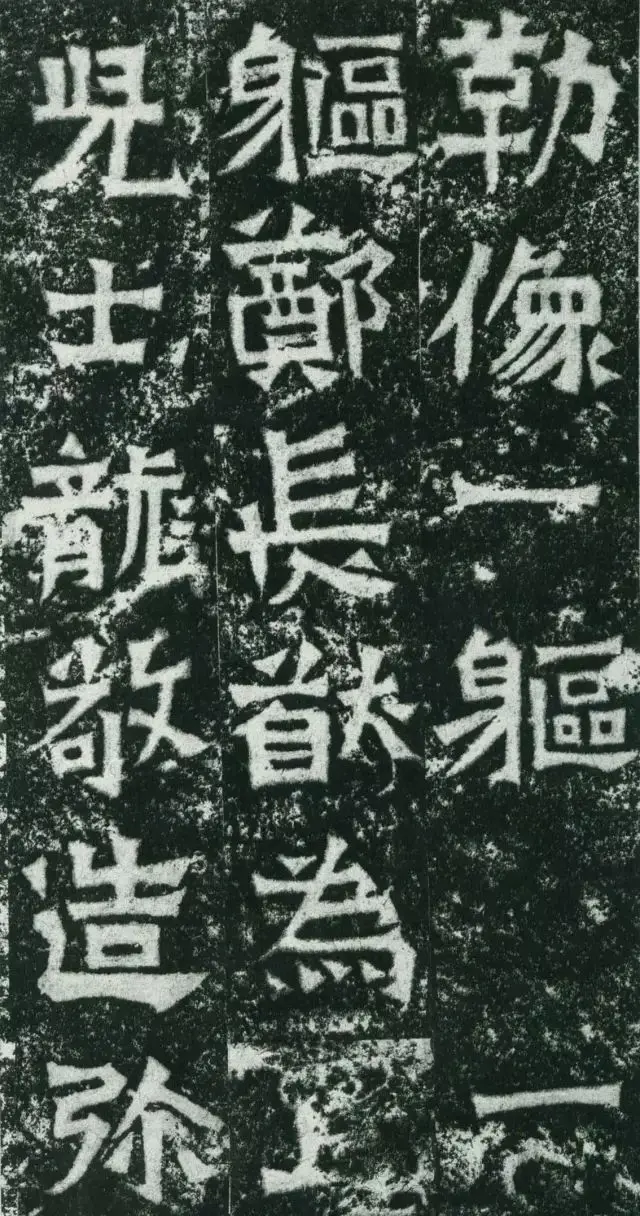 勒像一軀一
軀鄭長猷為
兒士龍敬造弥